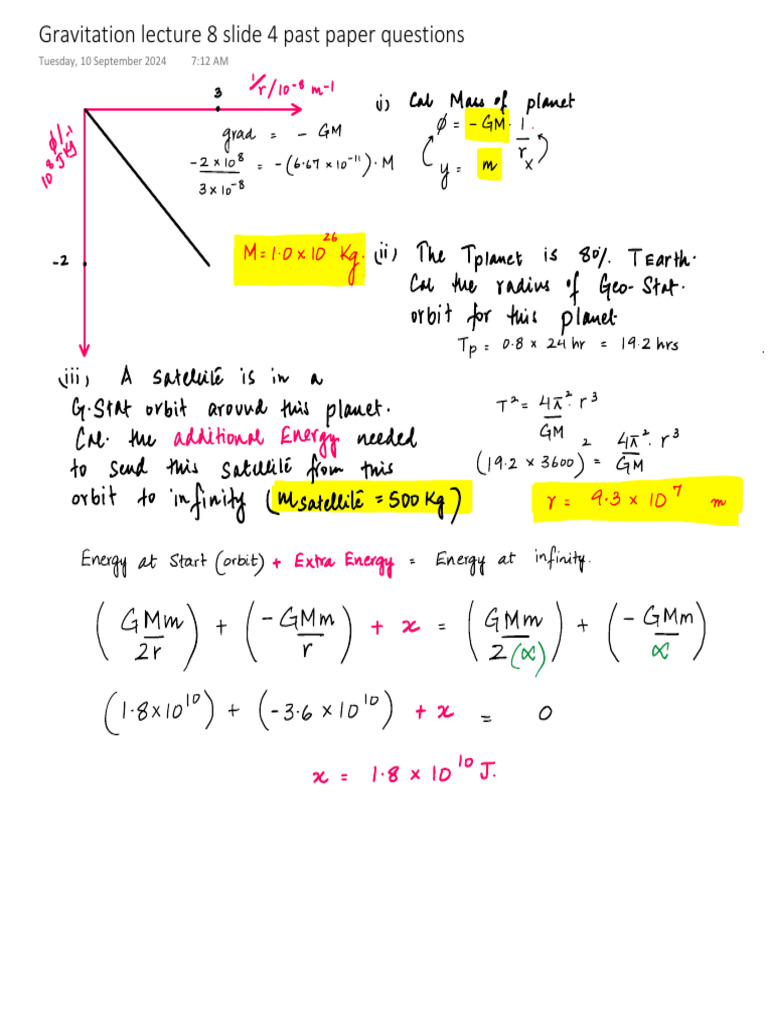 Gravitation lecture 8 slide 4 past paper questions
Tuesday, 10 September 2024 7:12 AM
3
1/r/10⁻⁸ m-1
ϕ/10⁸ J Kg⁻¹
-2
grad = - GM
-2 x 10⁸/3 x 10⁻⁸ = -(6.67 x 10⁻¹¹). M
M = 1.0 x 10²⁶ Kg.
i) Cal Mass of planet
ϕ = - GM. 1/r
y = m x
(ii) The Tplanet is 80% TEarth.
Cal the radius of Geo-Stat.
orbit for this planet.
Tp = 0.8 x 24 hr = 19.2 hrs
T² = 4π². r³/GM
(19.2 x 3600)² = 4π². r³/GM
r = 9.3 x 10⁷ m
(iii) A satellite is in a
G.Stat orbit around this planet.
Cal. the additional Energy needed
to send this satellite from this
orbit to infinity (Msatellite = 500 Kg)
Energy at Start (orbit) + Extra Energy = Energy at infinity.
(GMm/2r) + (-GMm/r) + x = (GMm/2(∝)) + (-GMm/∝)
(1.8x10¹⁰) + (-3.6 x 10¹⁰) + x = 0
x = 1.8 x 10¹⁰ J.